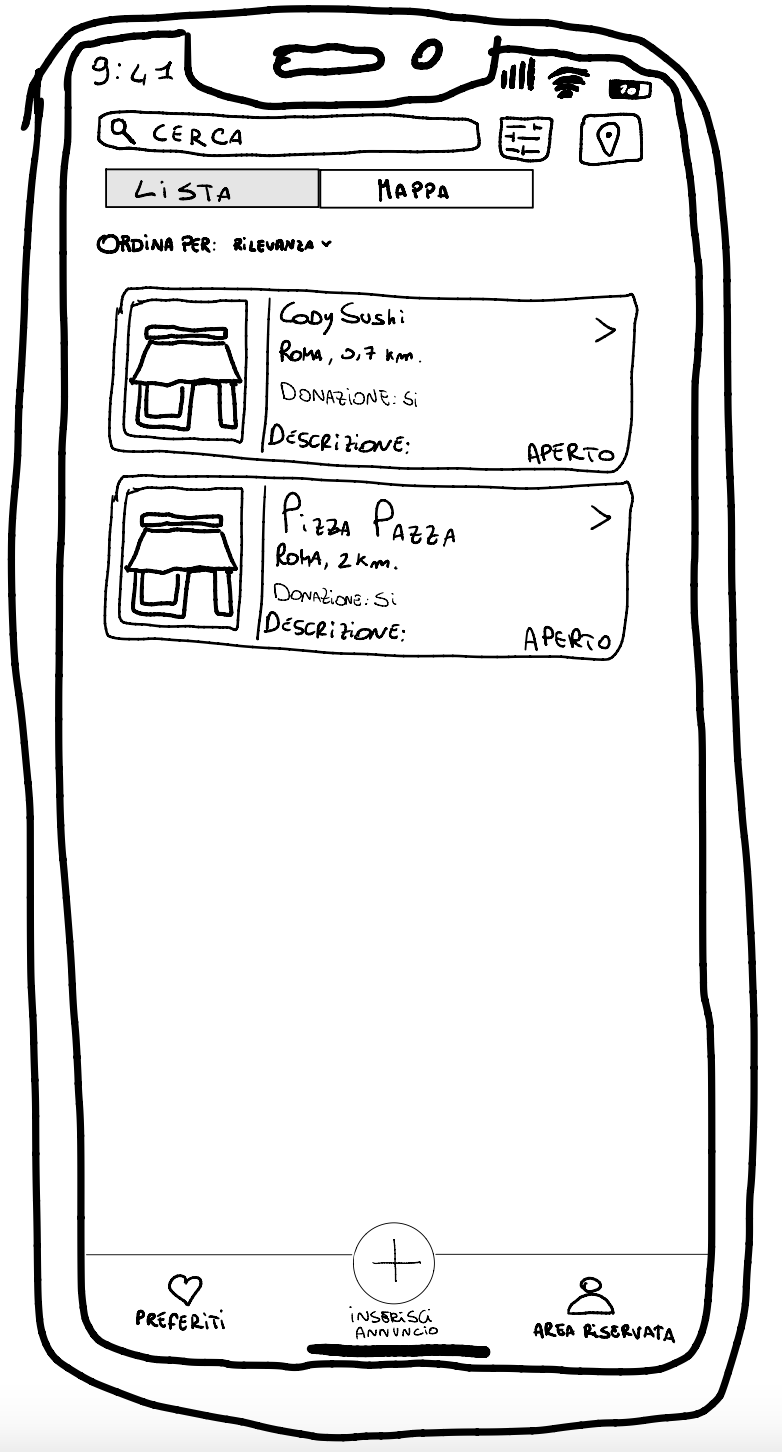 9:41
CERCA
LiSTA MAPPA
ORDiNA PER: RiLEVANZA
Cody Sushi
ROMA, 0,7 km.
DONAZIONE: Si
DESCRIZIONE:
APERTO
PiZZA PAZZA
ROMA, 2 km.
DONAZIONE: Si
DESCRIZIONE:
APERTO
PREFERiTi
iNSERiSCi
ANNUNCIO
AREA RiSERVATA